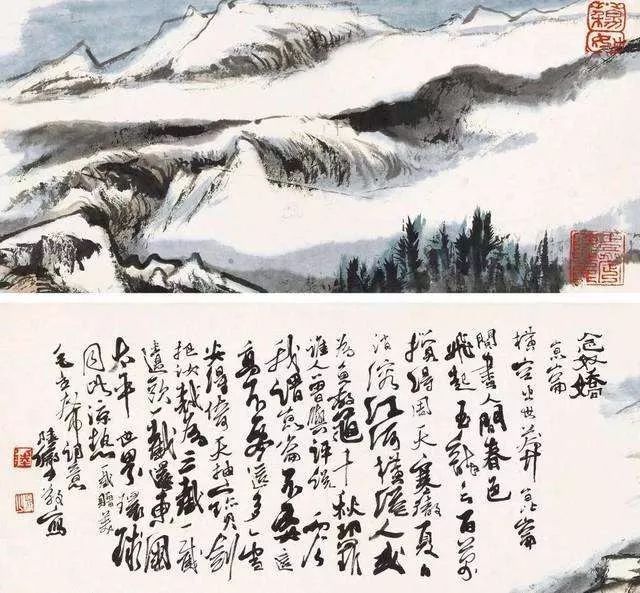 念奴嬌
崑崙
橫空出世莽崑崙
閱盡人間春色
飛起玉龍三百萬
攪得周天寒徹夏日
消溶江河橫溢人或
為魚鱉千秋功罪
誰人曾與評說 而今
我謂崑崙不要這
高不要這多雪
安得倚天抽寶劍
把汝裁為三截一截
遺歐一截還東國
太平世界環球
同此涼熱 一截贈美
毛主席詞意
陸儼少敬寫